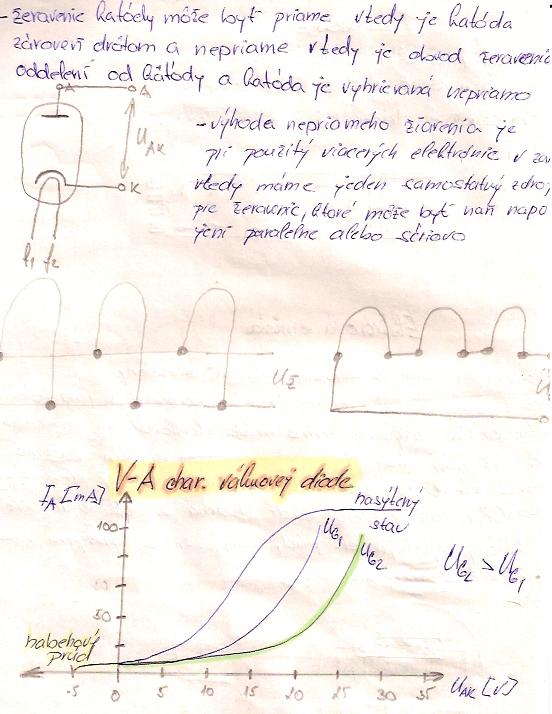 - žeravenie katódy môže byť priame vtedy je katóda
zároveň drôtom a nepriame vtedy je obvod žeravenia
oddelení od katódy a katóda je vyhrievaná nepriamo
A A
U AK
K
f1 f2
- výhoda nepriameho žiarenia je
pri použitý viacerých elektrónic v za
vtedy máme jeden samostatný zdroj
pre žeravenie, ktoré môže byť naň napo
jení paralelne alebo sériovo
UŽ
V-A char. vákuovej diode
IA [mA]
nasýtený
stav
100
50
UG1
UG2
UG2 > UG1
nabehový
prúd
-5 0 5 10 15 20 25 30 35 UAK [V]